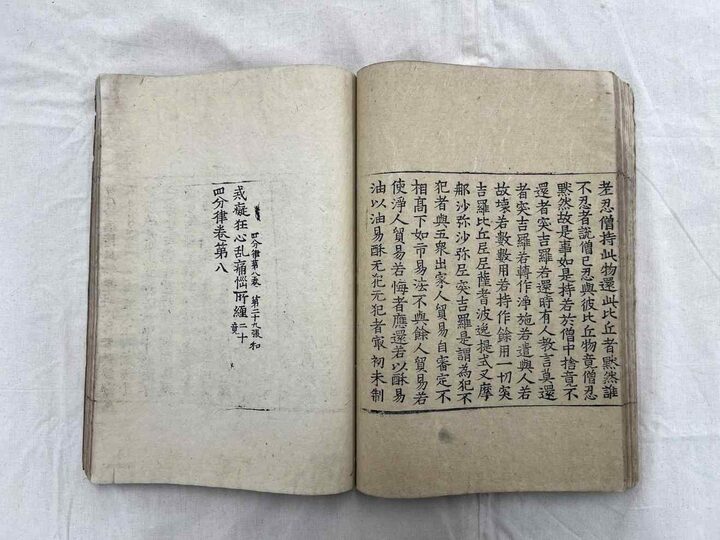 老忍僧持此物還此比丘者黙然誰
不忍者說僧已忍與彼比丘物竟僧忍
黙然故是事如是持若於僧中捨竟不
還者突吉羅若還時有人教言莫還
者突吉羅若轉作淨施若遣與人若
故壞若數數用若持作餘用一切突
吉羅比丘尼尼薩耆波逸提式叉摩
那沙弥沙弥尼突吉羅是謂為犯不
犯者與五衆出家人貿易自審定不
相髙下如市易法不與餘人貿易若
使淨人貿易若悔者應還若以酥易
油以油易酥无犯无犯者㝡初未制
四分律第八卷 第二十九張 和
戒癡狂心乱痛惱所纏二十竟
四分律卷第八